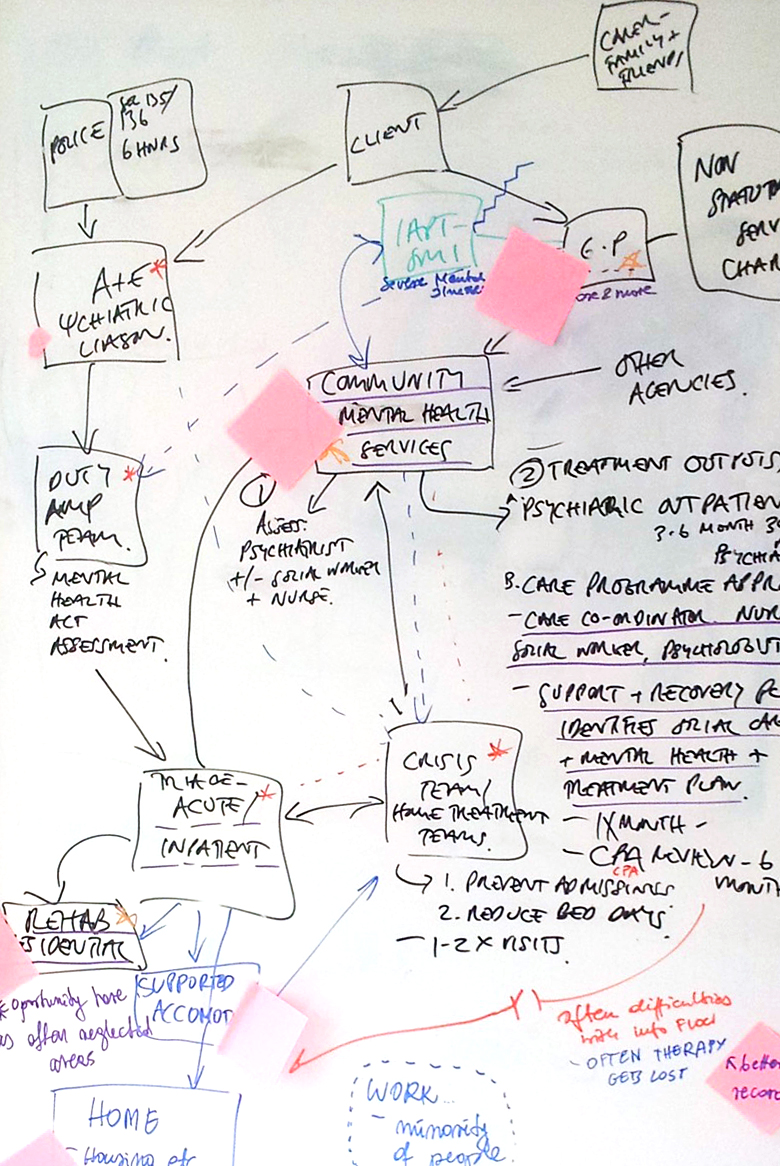 CARER-
FAMILY +
FRIENDS
POLICE
SEC 135/
136
6 HNRS
CLIENT
NON
STATUTO
SERV
CHAR
IAPT-
SMI
Severe Mental
Illness
G.P
one & more
A+E
YCHIATRIC
LIASON.
COMMUNITY
MENTAL HEALTH
SERVICES
OTHER
AGENCIES.
DUTY
AMP
TEAM.
MENTAL
HEALTH
ACT
ASSESSMENT.
1
ASSESS:
PSYCHIATRIST
+/- SOCIAL WORKER
+ NURSE.
2 TREATMENT
PSYCHIARIC OUTPATIEN
3-6 MONTH
PSYCHIA
B. CARE PROGRAMME APPR
- CARE CO-ORDINATOR. NUR
SOCIAL WORKER, PSYCHOLOGIST
- SUPPORT + RECOVERY
IDENTIFIES SOCIAL CAR
+ MENTAL HEALTH +
TREATMENT PLAN.
- 1X MONTH -
- CPA REVIEW - 6
CPA
MONTH
TRIAGE-
ACUTE/
INPATIENT
CRISIS
TEAM/
HOME TREATMENT
TEAMS.
1. PREVENT ADMISSIONS
2. REDUCE BED DAYS
- 1-2 X VISITS.
REHAB
SIDENTIAL
SUPPORTED
ACCOMOD
oportunity here
as often neglected
areas
often difficulties
with info flow
- OFTEN THERAPY
GETS LOST
better
record
HOME
- Housing etc
WORK...
- minority
of people